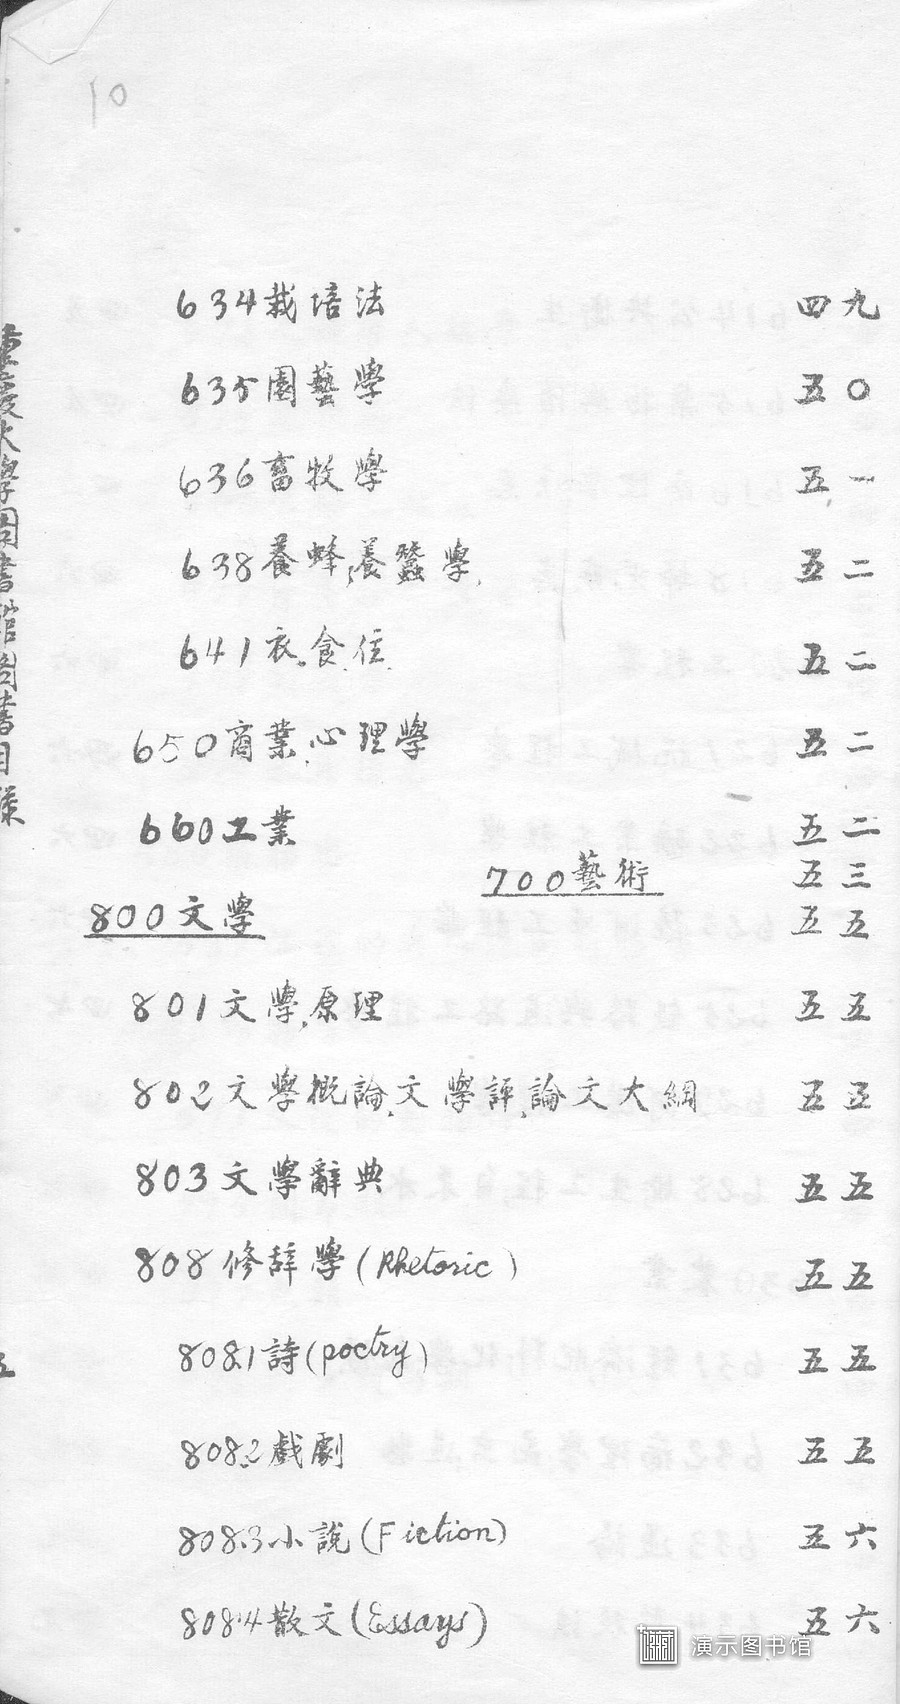 10
634栽培法 四九
635園藝學 五〇
636畜牧學 五一
638養蜂,養蠶學, 五二
641衣,食,住 五二
650商業,心理學 五二
660工業 五二
700藝術 五三
800文學 五五
801文學,原理 五五
802文學概論,文學評,論文大綱 五五
803文學辭典 五五
808修辞學(Rhetoric) 五五
808.1詩(poetry) 五五
808.2戲劇 五五
808.3小說(Fiction) 五六
808.4散文(Essays) 五六
重慶大學圖書館圖書目錄
五
演示图书馆